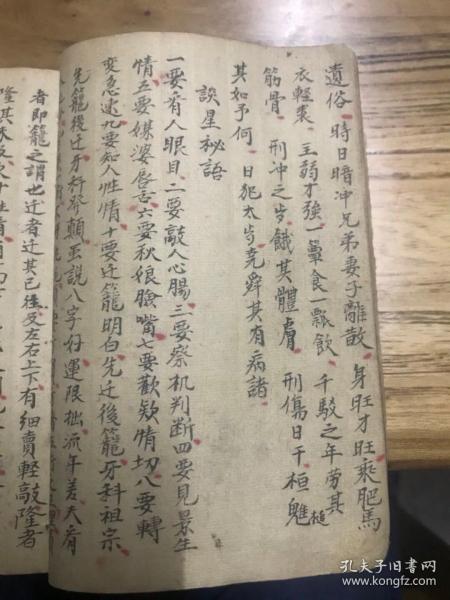 遺俗 時日暗冲兄弟妻子離散 身旺才旺乘肥馬
衣輕裘 主弱才強一簞食一瓢飲 千駁之年劳其
筋骨 刑冲之岁餓其體膚 刑傷日干桓魋
其如予何 日犯太岁尭舜其有病諸
談星秘語
一要有人眼目二要敲人心腸三要察机判断四要見景生
情五要媒婆唇舌六要秋娘臉嘴七要歡欵情切八要轉
変急速九要知人性情十要迁籠明白先迁後籠牙科祖宗
先籠後迁牙科 顛 説八字好運限拙流年差夭有
者即籠之謂也迁者迁其已往及左右上下有细賣輕敲隆者
孔夫子旧书网
www.kongfz.com